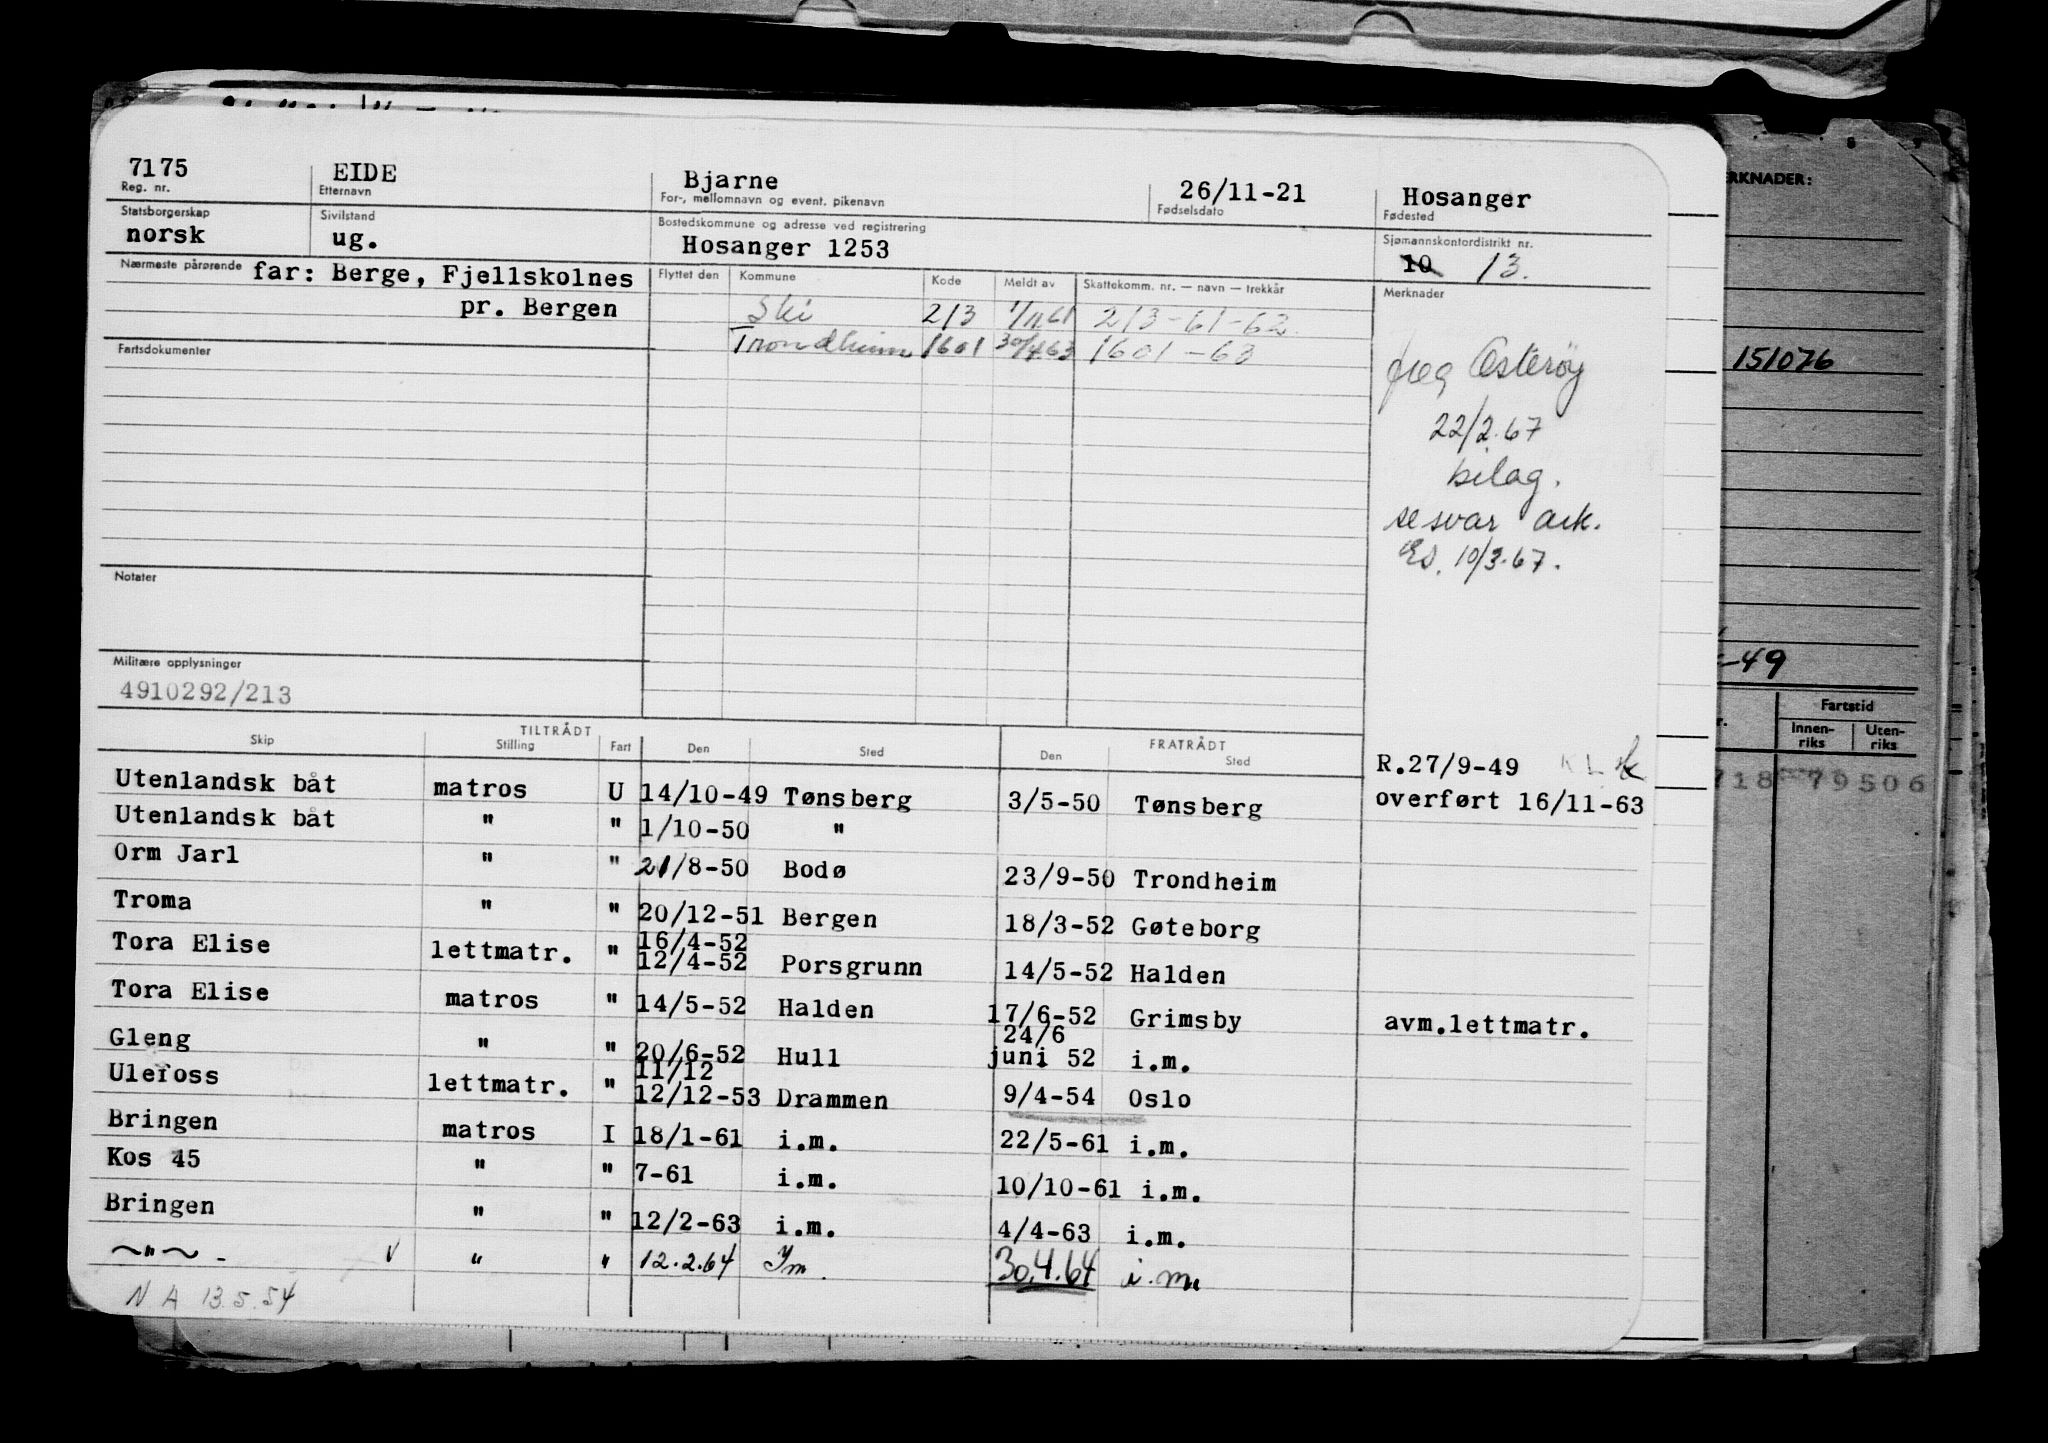 7175 EIDE Bjarne 26/11-21 Hosanger
Reg. nr. Etternavn For-, mellomnavn og event. pikenavn Fødselsdato Fødested
Statsborgerskap Sivilstand Bostedskommune og adresse ved registrering Sjømannskontordistrikt nr.
norsk ug. Hosanger 1253 10 13.
Nærmeste pårørende far: Berge, Fjellskolnes
pr. Bergen
Flyttet den Kommune Kode Meldt av Skattekomm. nr. — navn — trekkår Merknader
Ski 213 1/11.61 213-61-62
Trondheim 1601 30/4.63 1601-63
Fartsdokumenter
Osterøy
22/2.67
bilag.
se svar ark.
10/3-67.
Notater
Militære opplysninger
4910292/213
TILTRÅDT FRATRÅDT
Skip Stilling Fart Den Sted Den Sted
R.27/9-49
Utenlandsk båt matros U 14/10-49 Tønsberg 3/5-50 Tønsberg overført 16/11-63
Utenlandsk båt " " 1/10-50 "
Orm Jarl " " 21/8-50 Bodø 23/9-50 Trondheim
Troma " " 20/12-51 Bergen 18/3-52 Gøteborg
16/4-52
Tora Elise lettmatr. " 12/4-52 Porsgrunn 14/5-52 Halden
Tora Elise matros " 14/5-52 Halden 17/6-52 Grimsby avm.lettmatr.
24/6
Gleng " " 20/6-52 Hull juni 52 i.m.
11/12
Ulefoss lettmatr. " 12/12-53 Drammen 9/4-54 Oslo
Bringen matros I 18/1-61 i.m. 22/5-61 i.m.
Kos 45 " " 7-61 i.m. 10/10-61 i.m.
Bringen " " 12/2-63 i.m. 4/4-63 i.m.
~"~ - V " " 12.2.64 Im. 30.4.64 i.m.
N A 13.5.54
RKNADER:
151076
-49
Fartstid
Innen-
riks
Uten-
riks
718 79506